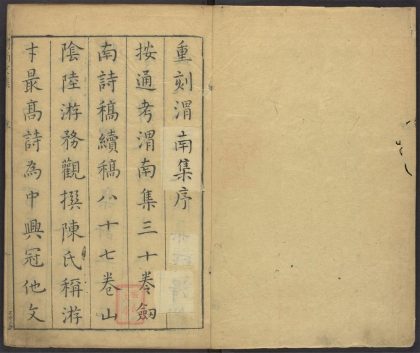 重刻渭南集序
按通考渭南集三十卷劒
南詩稿續稿八十七卷山
陰陸游務觀撰陳氏稱游
才最高詩為中興冠他文